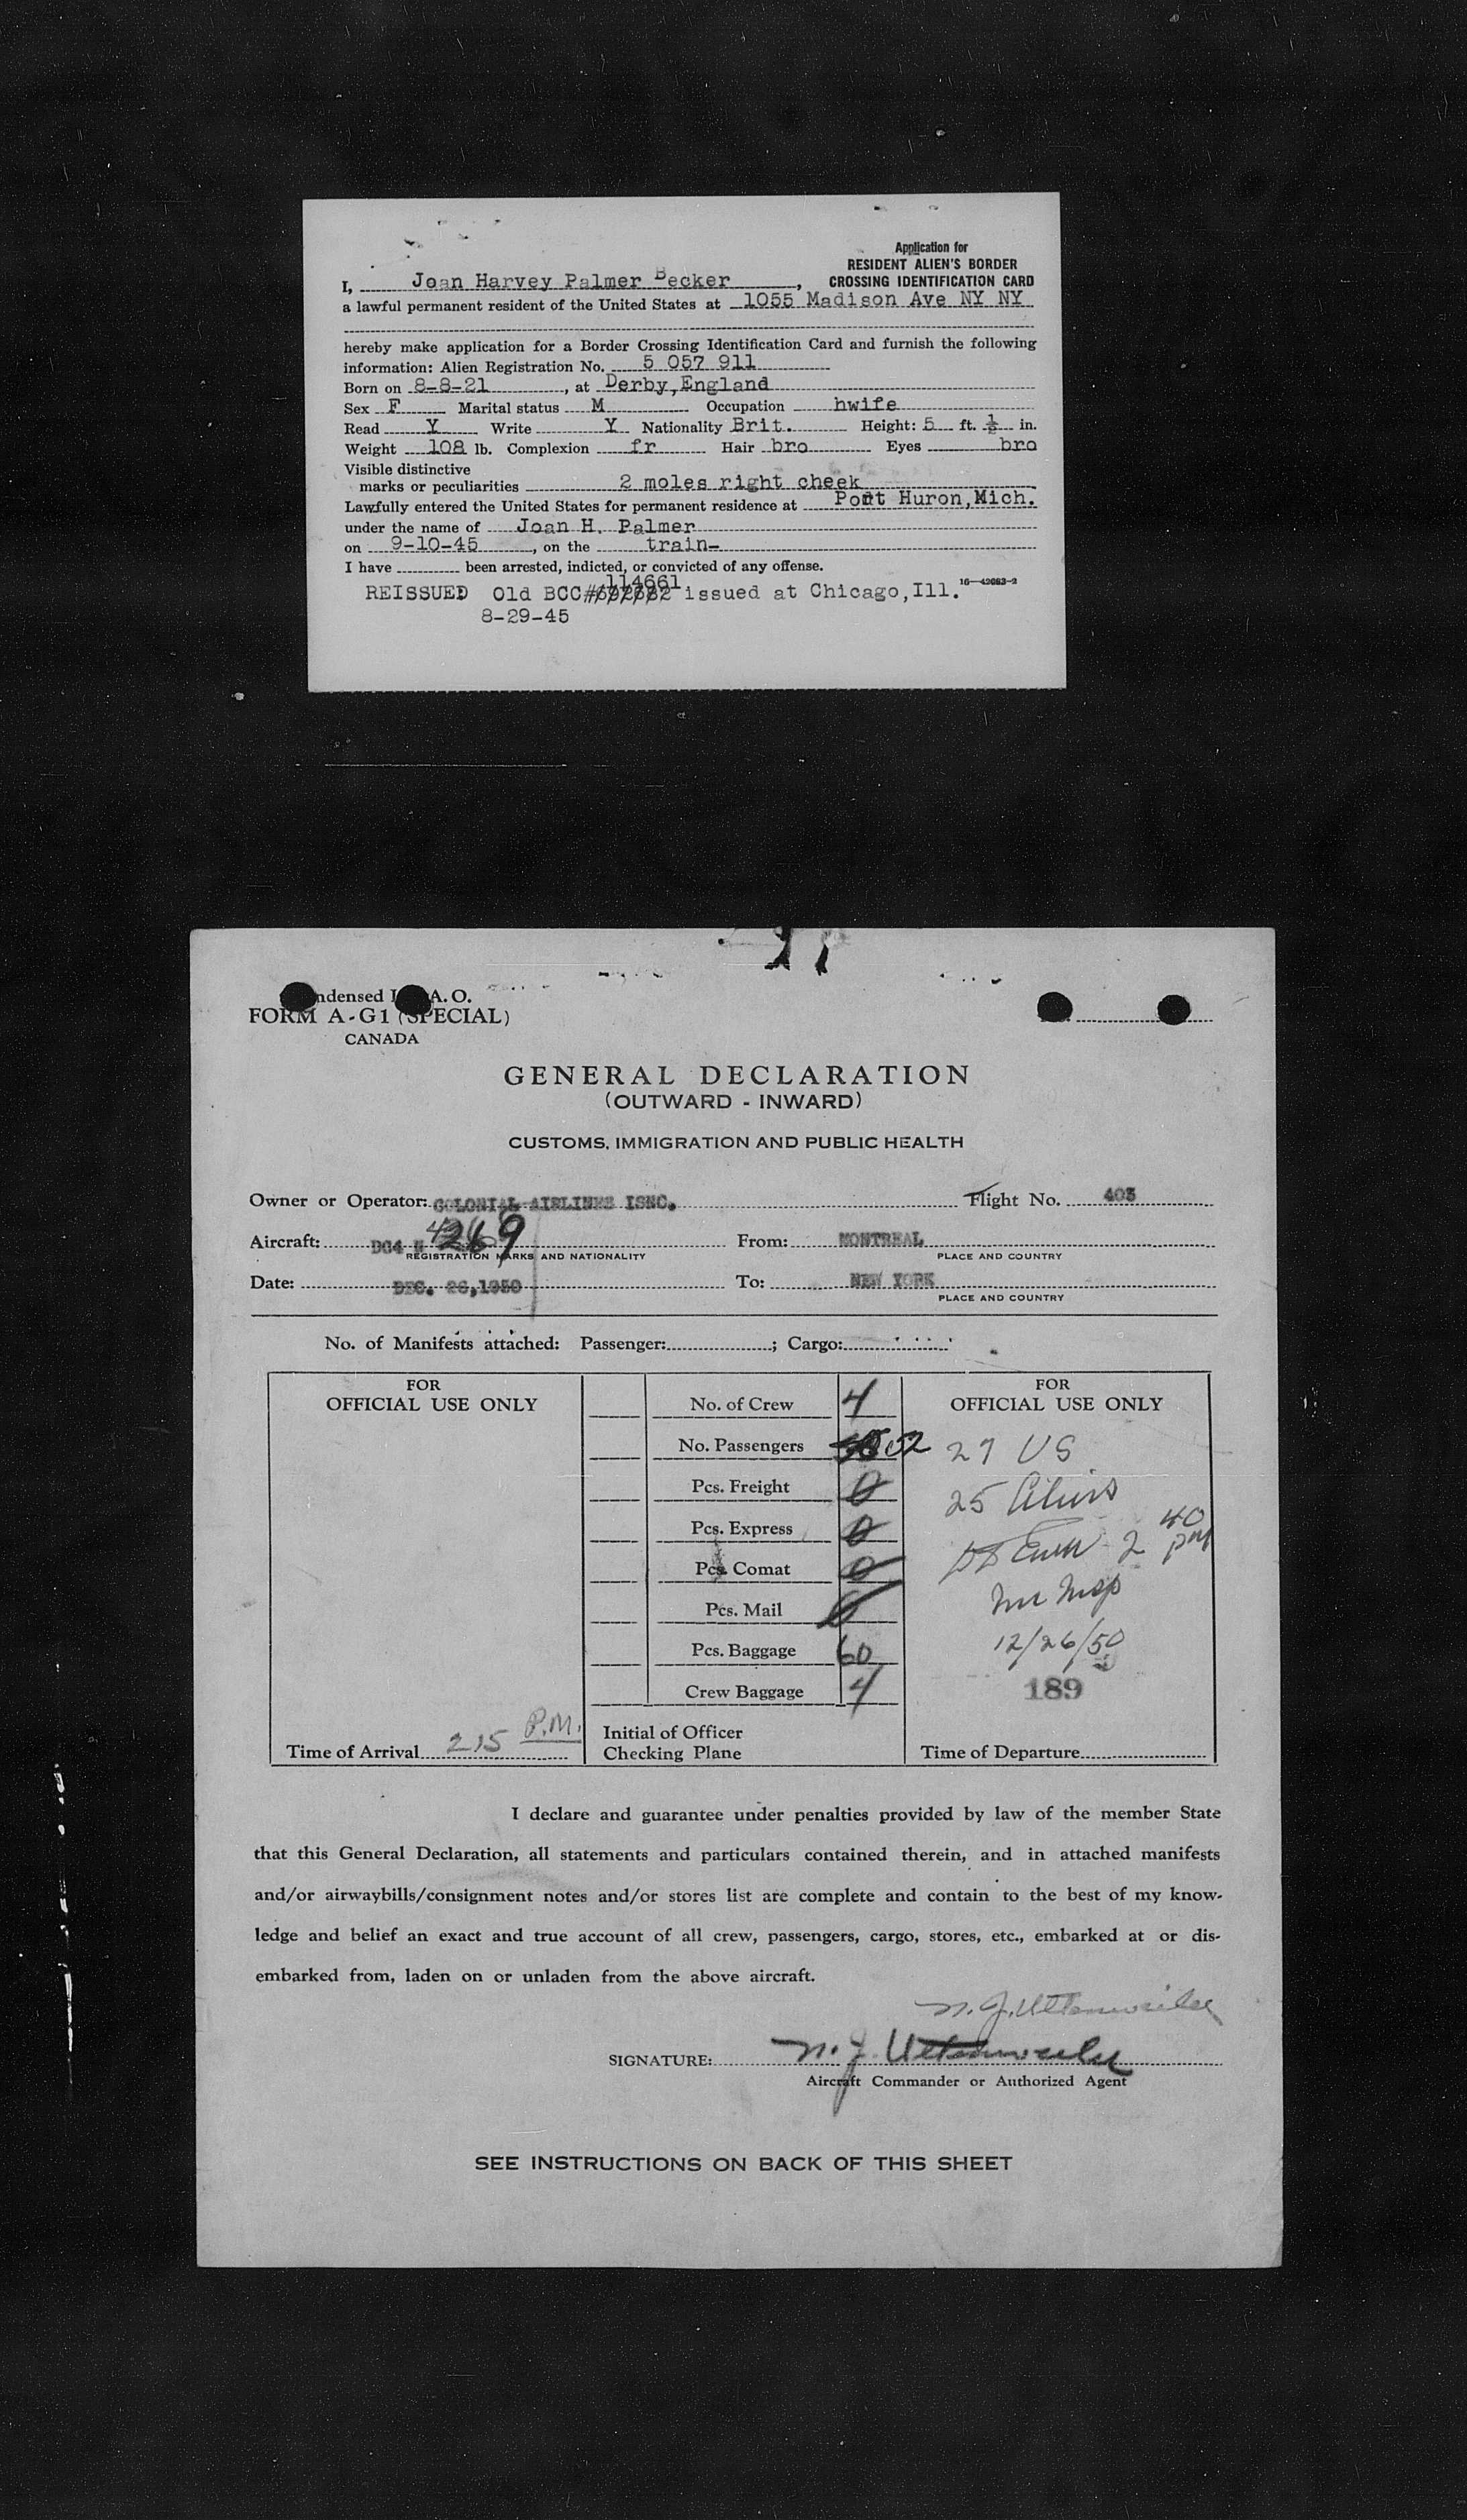 Application for
RESIDENT ALIEN'S BORDER
CROSSING IDENTIFICATION CARD
I, Joan Harvey Palmer Becker,
a lawful permanent resident of the United States at 1055 Madison Ave NY NY
hereby make application for a Border Crossing Identification Card and furnish the following
information: Alien Registration No. 5 057 911
Born on 8-8-21, at Derby,England
Sex F Marital status M Occupation hwife
Read Y Write Y Nationality Brit. Height: 5 ft. ½ in.
Weight 108 lb. Complexion fr Hair bro Eyes bro
Visible distinctive
marks or peculiarities 2 moles right cheek
Lawfully entered the United States for permanent residence at Port Huron,Mich.
under the name of Joan H. Palmer
on 9-10-45, on the train-
I have been arrested, indicted, or convicted of any offense.
16—42083-2
114661
REISSUED Old BCC# issued at Chicago,Ill.
8-29-45
ndensed I A. O.
FORM A-G1 (SPECIAL)
CANADA
GENERAL DECLARATION
(OUTWARD - INWARD)
CUSTOMS, IMMIGRATION AND PUBLIC HEALTH
Owner or Operator: COLONIAL AIRLINES ISNC. Flight No. 403
Aircraft: DC4 N 269 From: MONTREAL
REGISTRATION MARKS AND NATIONALITY PLACE AND COUNTRY
Date: DEC. 26,1950 To: NEW YORK
PLACE AND COUNTRY
No. of Manifests attached: Passenger: ; Cargo:
FOR
OFFICIAL USE ONLY
No. of Crew 4
No. Passengers 52
Pcs. Freight 0
Pcs. Express 0
Pcs. Comat 0
Pcs. Mail 0
Pcs. Baggage 60
Crew Baggage 4
FOR
OFFICIAL USE ONLY
27 US
25 Aliens
2 40 PM
12/26/50
189
Time of Arrival 215 P.M.
Initial of Officer
Checking Plane
Time of Departure
I declare and guarantee under penalties provided by law of the member State
that this General Declaration, all statements and particulars contained therein, and in attached manifests
and/or airwaybills/consignment notes and/or stores list are complete and contain to the best of my know-
ledge and belief an exact and true account of all crew, passengers, cargo, stores, etc., embarked at or dis-
embarked from, laden on or unladen from the above aircraft.
SIGNATURE:
Aircraft Commander or Authorized Agent
SEE INSTRUCTIONS ON BACK OF THIS SHEET